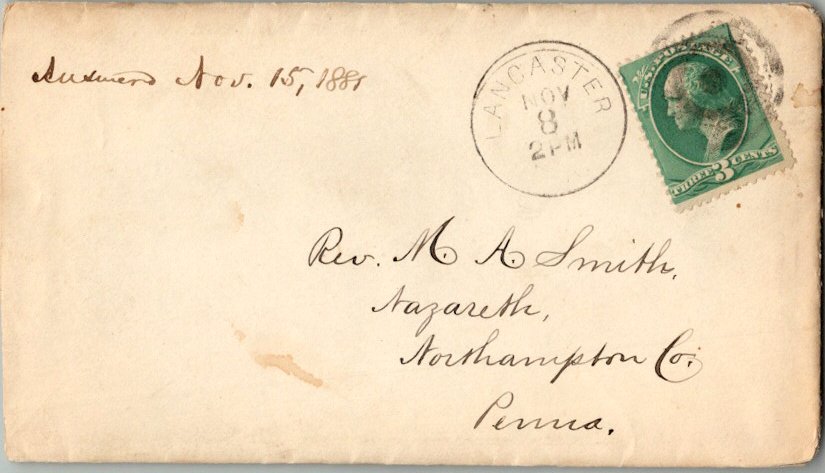 Answered Nov. 15, 1881
LANCASTER
NOV
8
2PM
U.S. POSTAGE
THREE 3 CENTS
Rev. M. A. Smith,
Nazareth,
Northampton Co.
Penna.